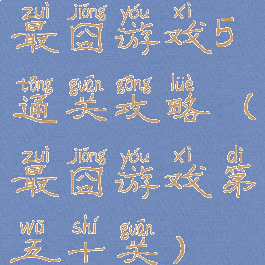 zuì jiǒng yóu xì
最囧游戏5
tōng guān gōng lüè
通关攻略（
zuì jiǒng yóu xì dì
最囧游戏第
wǔ shí guān
五十关）